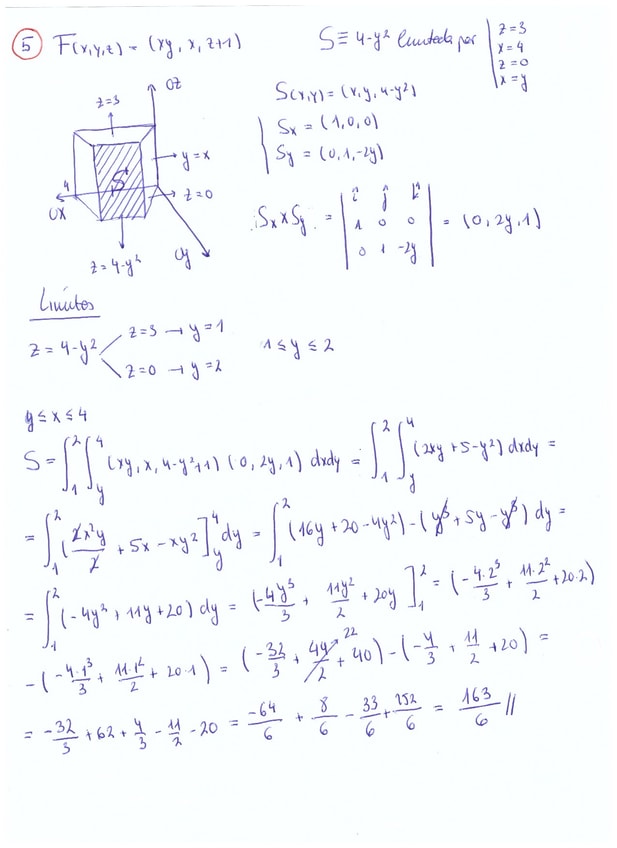 5 F(x,y,z) = (xy, x, z+1)
S ≡ 4-y² limitada por | z=3
x=4
z=0
x=y
S(x,y) = (x, y, 4-y²)
Sx = (1,0,0)
Sy = (0,1,-2y)
Sx x Sy = | î ĵ k̂ | = (0, 2y, 1)
1 0 0
0 1 -2y
OZ
z=3
y=x
4
S
z=0
OX
z=4-y²
OY
Limites
z = 4-y² z=3 → y=1
z=0 → y=2
1 ≤ y ≤ 2
y ≤ x ≤ 4
S = ∫₁² ∫y⁴ (xy, x, 4-y²+1) (0, 2y, 1) dxdy = ∫₁² ∫y⁴ (2xy + 5 - y²) dxdy =
= ∫₁² (2x²y/2 + 5x - xy²]y⁴ dy = ∫₁² (16y + 20 - 4y²) - (y³ + 5y - y³) dy =
= ∫₁² (-4y² + 11y + 20) dy = (-4y³/3 + 11y²/2 + 20y]₁² = (-4·2³/3 + 11·2²/2 + 20·2)
- (-4·1³/3 + 11·1²/2 + 20·1) = (-32/3 + 44/2 22 + 40) - (-4/3 + 11/2 + 20) =
= -32/3 + 62 + 4/3 - 11/2 - 20 = -64/6 + 8/6 - 33/6 + 252/6 = 163/6 //